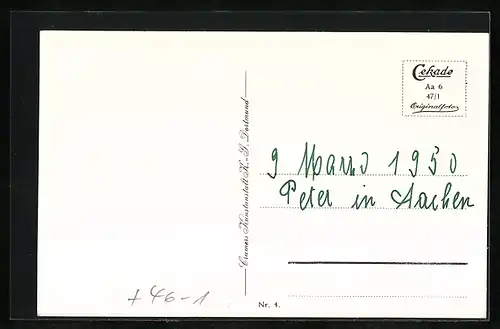 Cekade
Aa 6
47/1
Originalfoto
Cramers Kunstanstalt K.-G. Dortmund
9 Marzo 1950
Peter in Aachen
Nr. 4.
+ 46-1